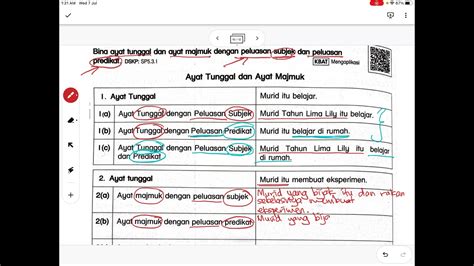 1:21 AM Wed 7 Jul
67%
Bina ayat tunggal dan ayat majmuk dengan peluasan subjek dan peluasan
predikat. DSKP: SP5.3.1
KBAT Mengaplikasi
Ayat Tunggal dan Ayat Majmuk
1. Ayat Tunggal
Murid itu belajar.
1(a) Ayat Tunggal dengan Peluasan Subjek
Murid Tahun Lima Lily itu belajar.
1(b) Ayat Tunggal dengan Peluasan Predikat
Murid itu belajar di rumah.
1(c) Ayat Tunggal dengan Peluasan Subjek
dan Predikat
Murid Tahun Lima Lily itu belajar
di rumah.
2. Ayat tunggal
Murid itu membuat eksperimen.
2(a) Ayat majmuk dengan peluasan subjek
Murid yang bijak itu dan rakan
sekelasnya membuat
eksperimen.
2(b) Ayat majmuk dengan peluasan predikat
Murid yang bija